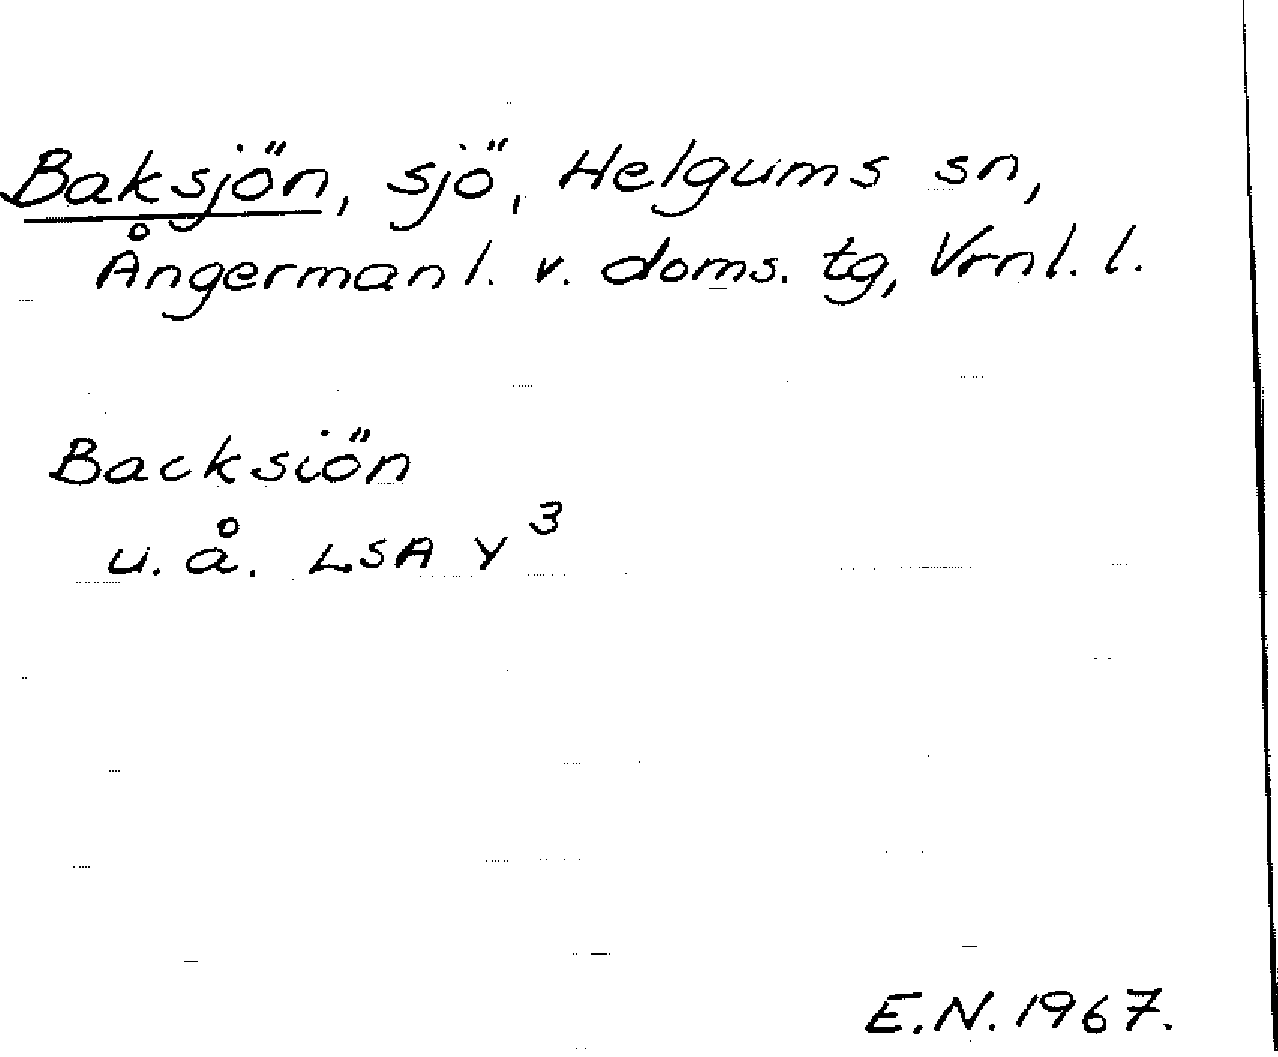 Baksjön, sjö, Helgums sn,
Ångermanl. v. doms. tg, Vrnl. l.
Backsiön
u. å. LSA Y³
E.N. 1967.